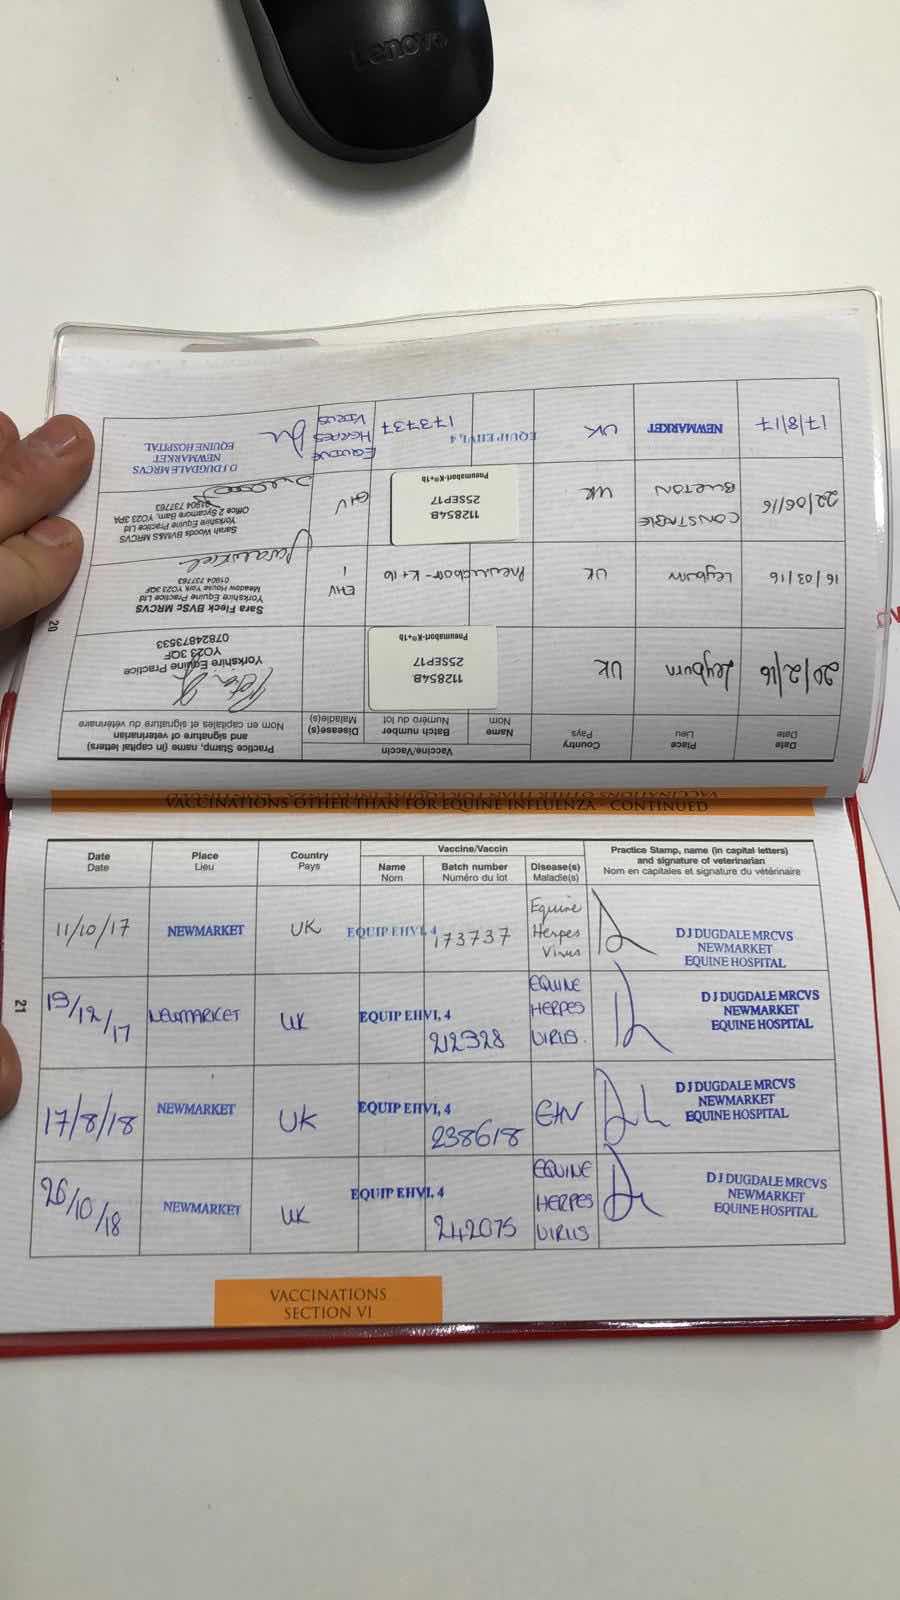 Lenovo
VACCINATIONS OTHER THAN FOR EQUINE INFLUENZA - CONTINUED
Date
Date
Place
Lieu
Country
Pays
Vaccine/Vaccin
Name
Nom
Batch number
Numéro du lot
Disease(s)
Maladie(s)
Practice Stamp, name (in capital letters)
and signature of veterinarian
Nom en capitales et signature du vétérinaire
20/2/16
Leyburn
UK
112854B
25SEP17
Pneumabort-K®+1b
Yorkshire Equine Practice
YO23 3QF
07824879533
16/03/16
Leyburn
UK
Pneumabort-K+1b
EHV
1
Sara Fleck BVSc MRCVS
Yorkshire Equine Practice Ltd
Meadow House York YO23 3QF
01904 737763
22/06/16
CONSTABLE
BURTON
UK
112854B
25SEP17
Pneumabort-K®+1b
EHV
Sarah Woods BVM&S MRCVS
Yorkshire Equine Practice Ltd
Office 2 Sycamore Barn, YO23 3PA
01904 737763
17/8/17
NEWMARKET
UK
EQUIP EHV1,4
173737
EQUINE
HERPES
VIRUS
D J DUGDALE MRCVS
NEWMARKET
EQUINE HOSPITAL
20
VACCINATIONS OTHER THAN FOR EQUINE INFLUENZA - CONTINUED
Date
Date
Place
Lieu
Country
Pays
Vaccine/Vaccin
Name
Nom
Batch number
Numéro du lot
Disease(s)
Maladie(s)
Practice Stamp, name (in capital letters)
and signature of veterinarian
Nom en capitales et signature du vétérinaire
11/10/17
NEWMARKET
UK
EQUIP EHV1, 4
173737
Equine
Herpes
Virus
D J DUGDALE MRCVS
NEWMARKET
EQUINE HOSPITAL
19/12/17
NEWMARKET
UK
EQUIP EHV1, 4
212328
EQUINE
HERPES
VIRUS.
D J DUGDALE MRCVS
NEWMARKET
EQUINE HOSPITAL
17/8/18
NEWMARKET
UK
EQUIP EHV1, 4
238618
EHV
D J DUGDALE MRCVS
NEWMARKET
EQUINE HOSPITAL
26/10/18
NEWMARKET
UK
EQUIP EHV1, 4
242075
EQUINE
HERPES
VIRUS
D J DUGDALE MRCVS
NEWMARKET
EQUINE HOSPITAL
21
VACCINATIONS
SECTION VI